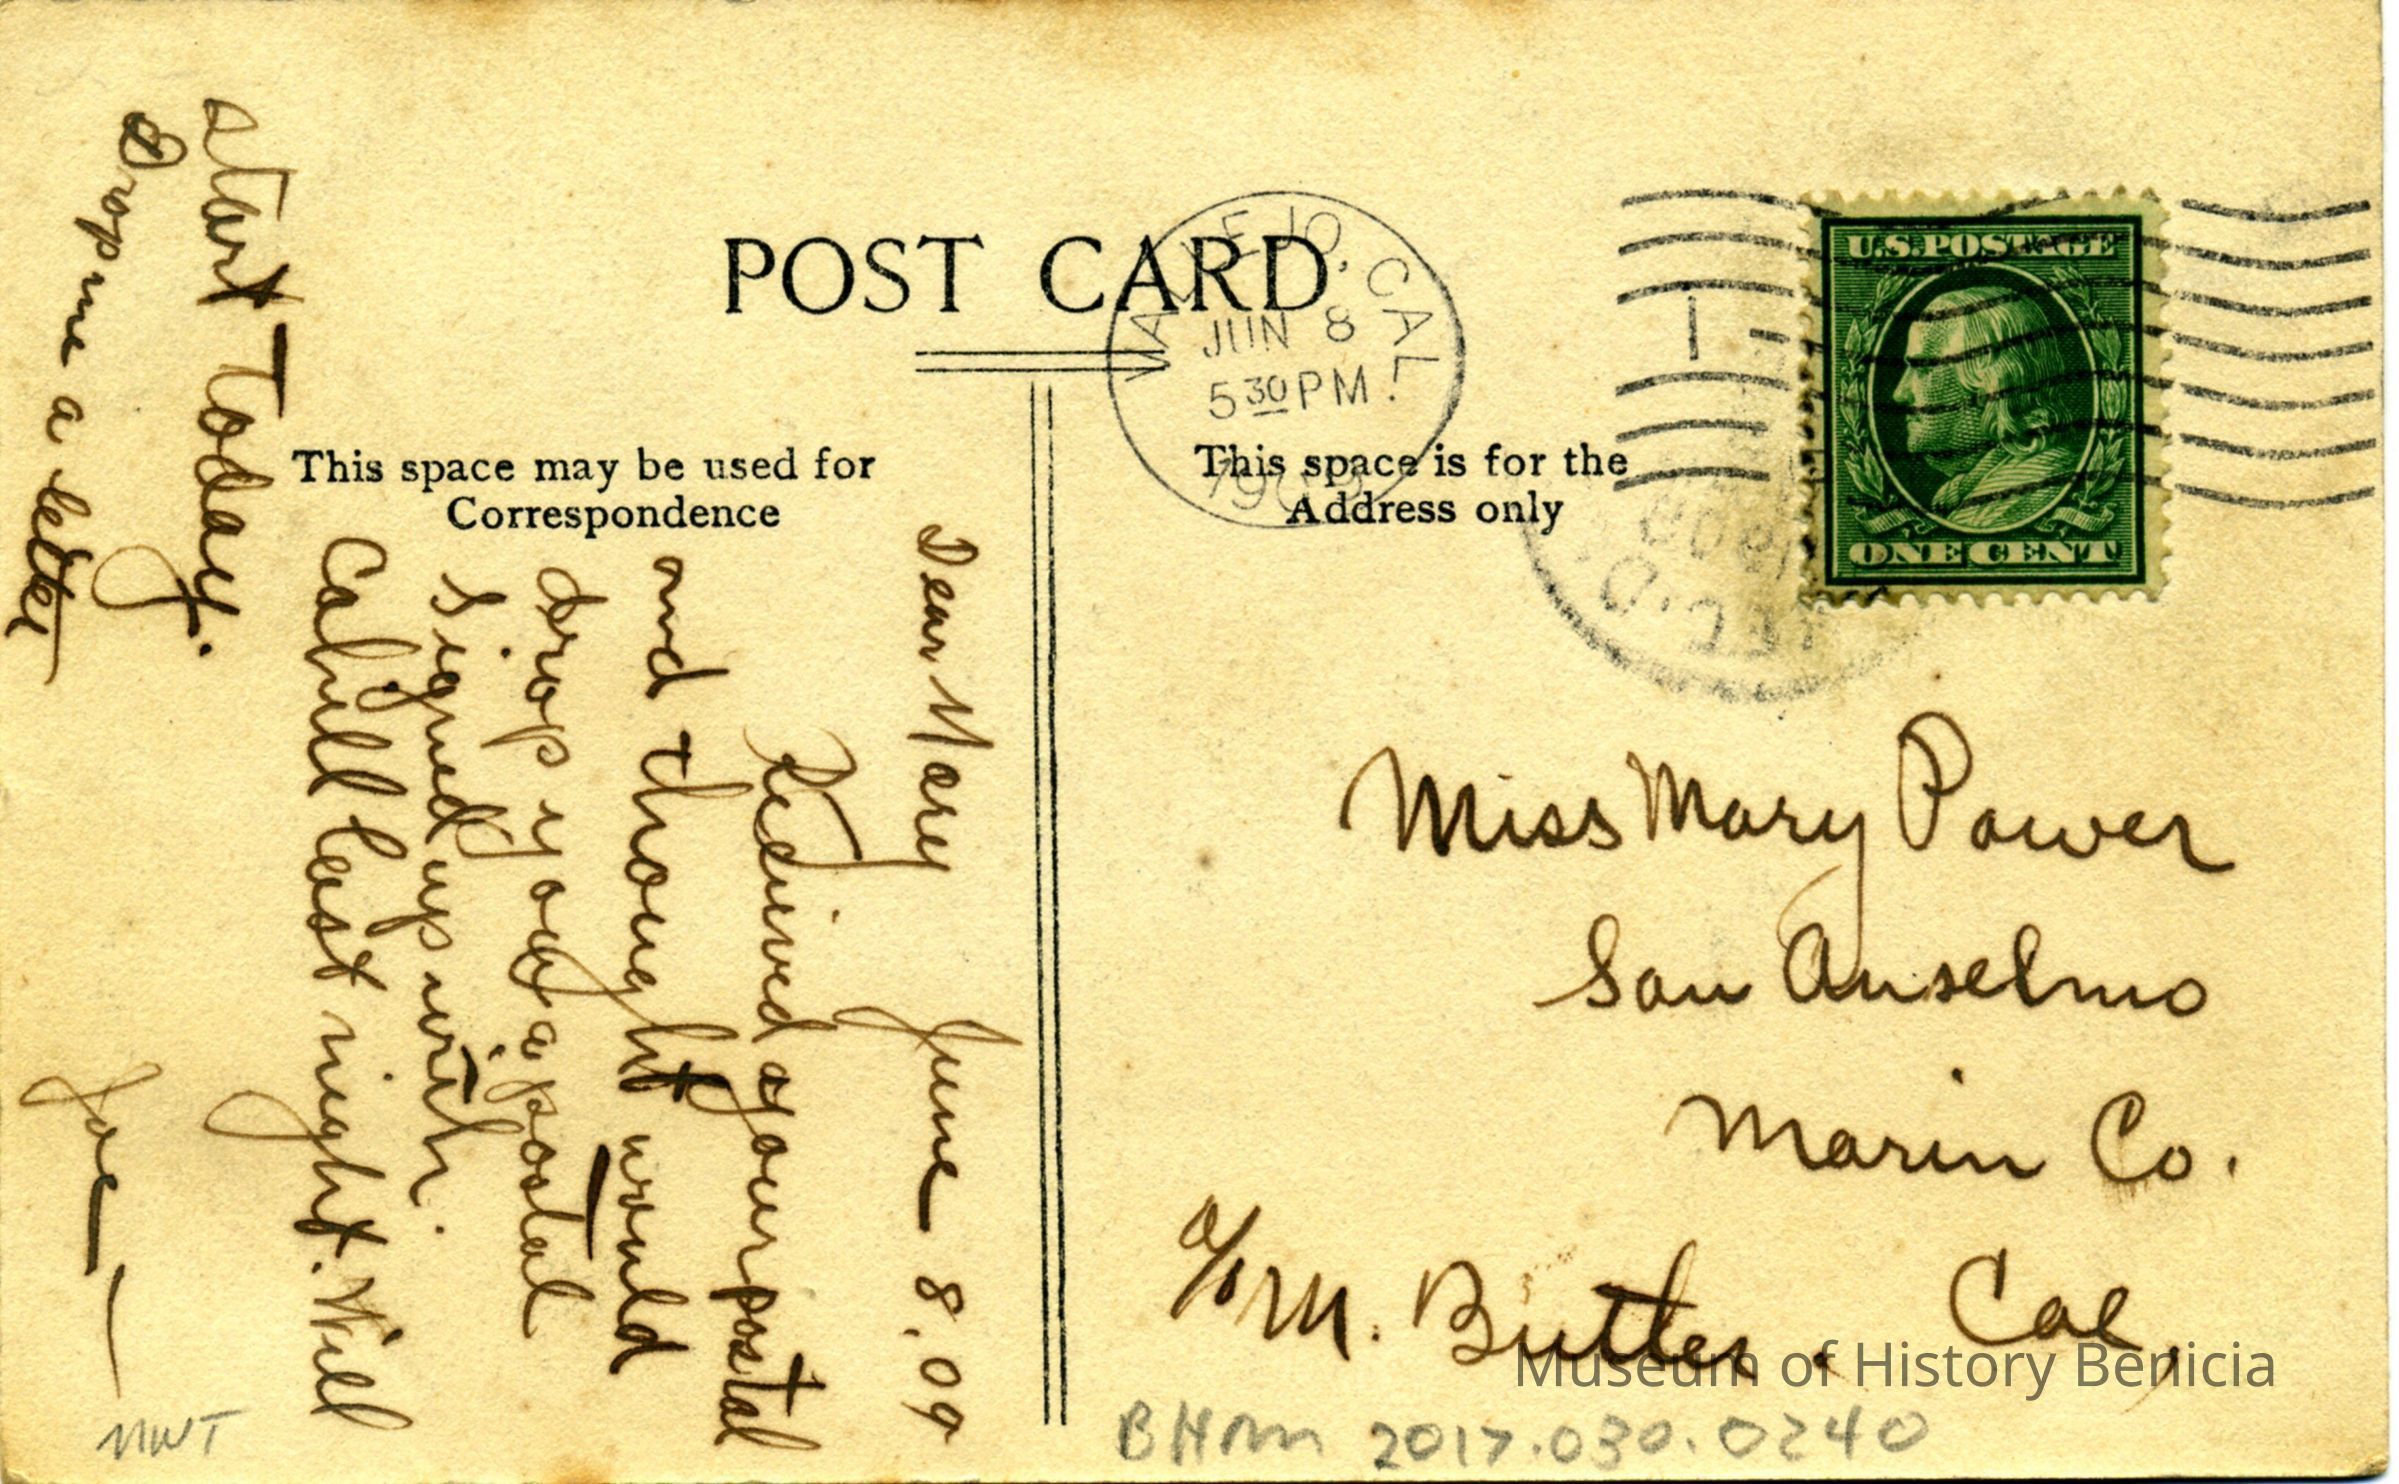 POST CARD
VALLEJO, CAL.
JUN 8
5 30 PM
1909
U.S. POSTAGE
ONE CENT
REC'D.
1909
This space may be used for
Correspondence
This space is for the
Address only
June 8. 09
Dear Mary
Recieved your postal
and thought would
drop you a postal
Signed up with
Cahill last night. Will
start today.
Drop me a letter
Joe
Miss Mary Power
San Anselmo
Marin Co.
Cal,
c/o M. Butler.
Museum of History Benicia
MWT
BHM 2017.030.0240